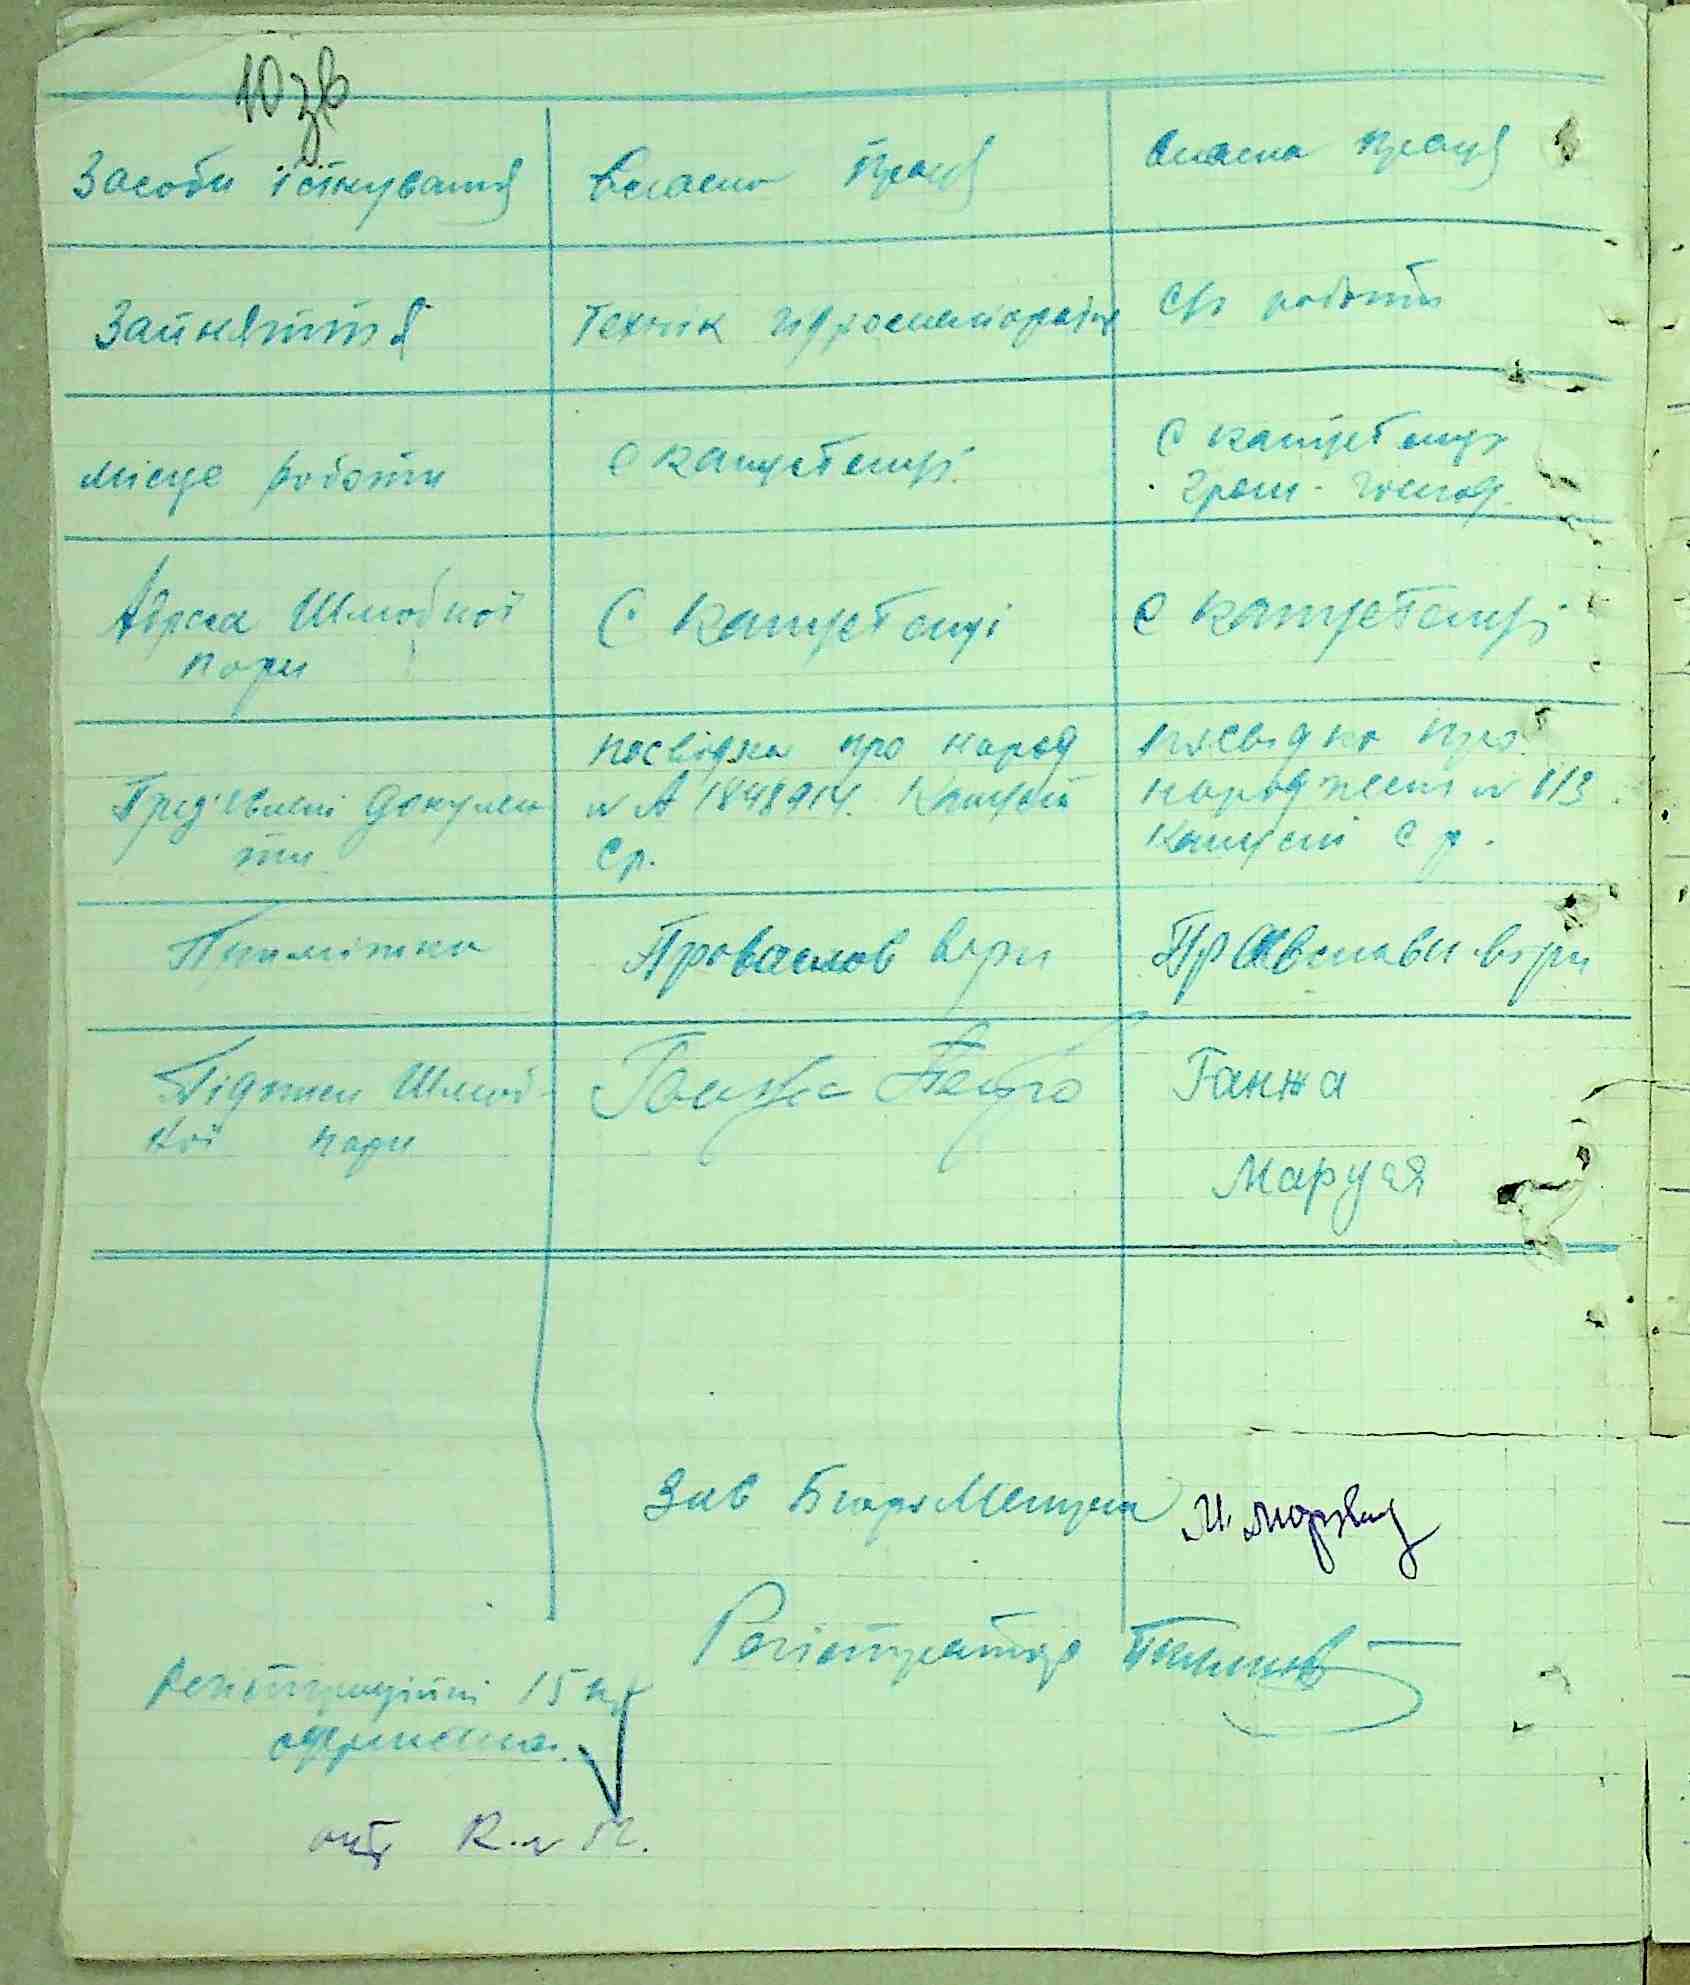 10 зв
Засоби існування
Власна праця
Власна праця
Зайняття
Технік гідромеліорації
С/г роботи
Місце роботи
с Капустенці
с Капустенці
гром. господ.
Адреса Шлюбної
пари
с Капустенці
с Капустенці
Пред'явлені докумен
ти
посвідка про народ
№ А 1848914.
ср.
посвідка про
народжен № 113
с р.
Примітка
Проваслов віри
Православн віри
Підписи Шлюб-
ної пари
Ганжа Петро
Ганжа
Маруся
Зав Бюро
Регістратор
Регістраційні 15 кр
одержана.